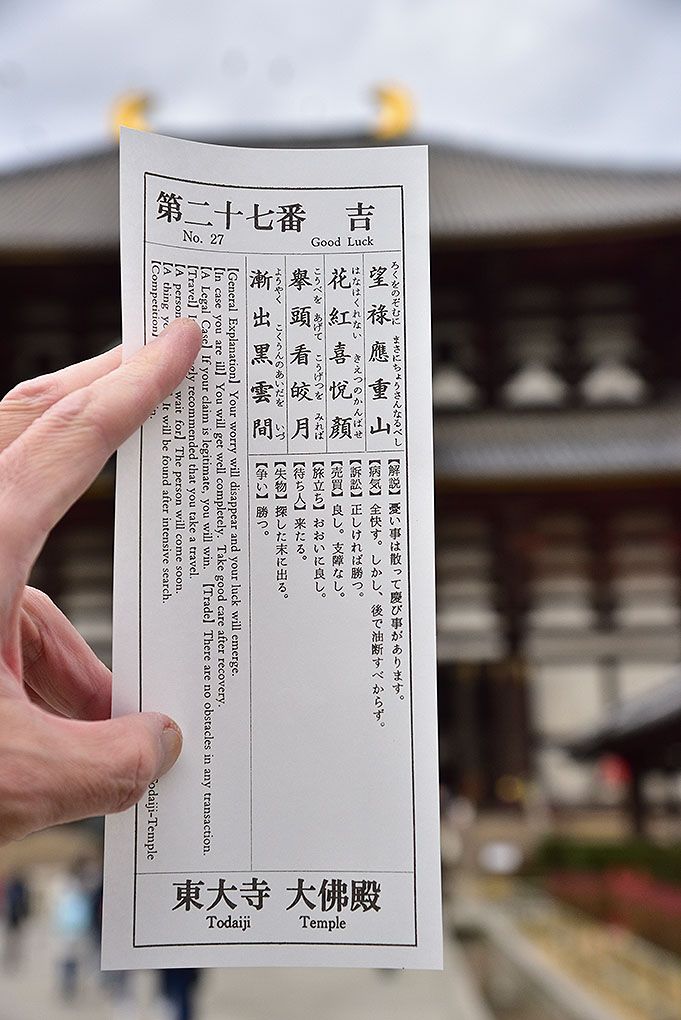 第二十七番 吉
No. 27 Good Luck
望祿應重山
ろくをのぞむに まさにちょうさんなるべし
花紅喜悦顔
はなはくれない きえつのかんばせ
擧頭看皎月
こうべを あげて こうげつを みれば
漸出黒雲間
ようやく こくうんのあいだを いづ
【解説】憂い事は散って慶び事があります。
【病気】全快す。しかし、後で油断すべからず。
【訴訟】正しければ勝つ。
【売買】良し。支障なし。
【旅立ち】おおいに良し。
【待ち人】来たる。
【失物】探した末に出る。
【争い】勝つ。
【General Explanation】Your worry will disappear and your luck will emerge.
【In case you are ill】You will get well completely. Take good care after recovery.
【A Legal Case】If your claim is legitimate, you will win. 【Trade】There are no obstacles in any transaction.
【Travel】 recommended that you take a travel.
【A person wait for】The person will come soon.
【A thing It will be found after intensive search.
【Competition】
Todaiji-Temple
東大寺 大佛殿
Todaiji Temple